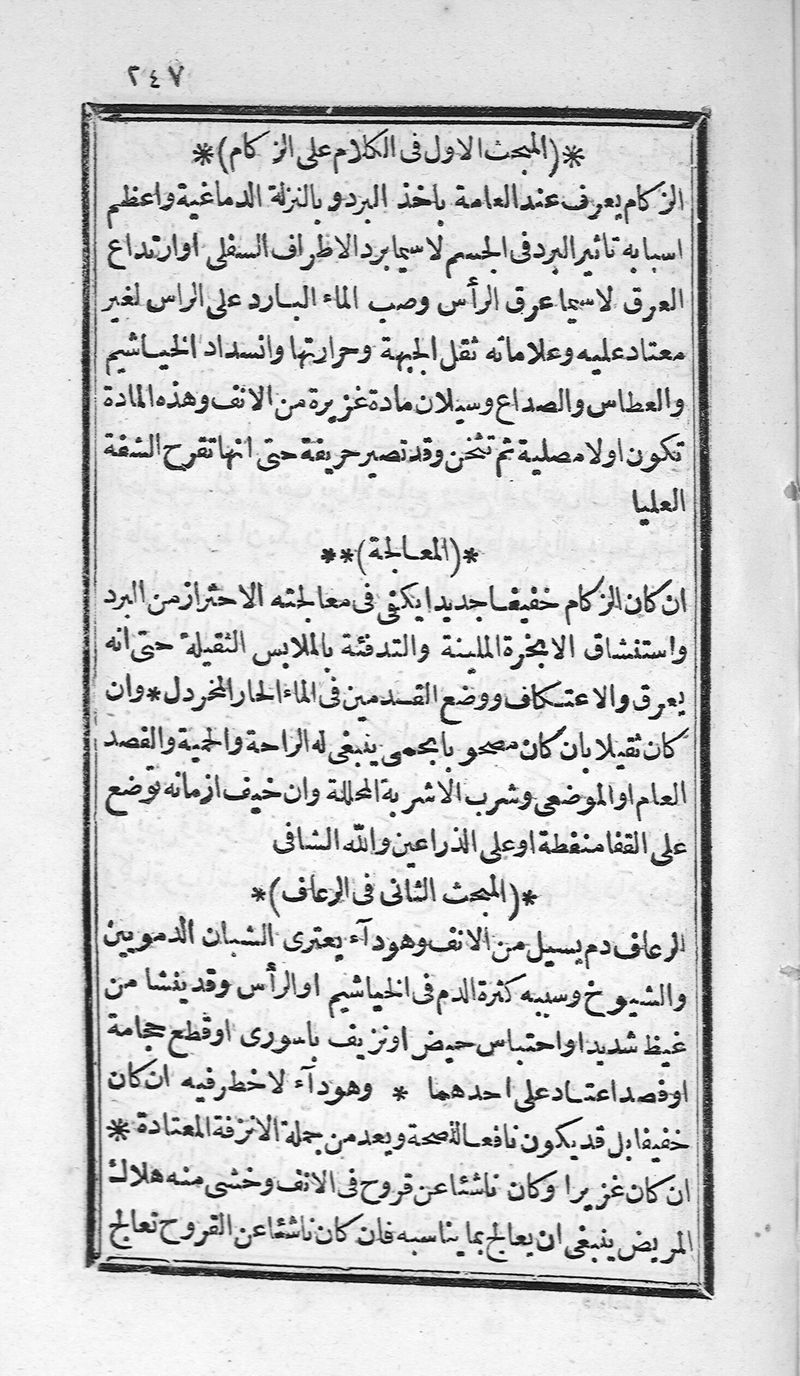 ٢٤٧
*(المبحث الاول فى الكلام على الزكام)*
الزكام يعرف عند العامة باخذ البرد و بالنزلة الدماغية واعظم
اسبابه تاثير البرد فى الجسم لاسيما برد الاطراف السفلى او ارتداع
العرق لاسيما عرق الرأس وصب الماء البارد على الراس لغير
معتاد عليه وعلاماته ثقل الجبهة وحرارتها وانسداد الخياشيم
والعطاس والصداع وسيلان مادة غزيرة من الانف وهذه المادة
تكون اولا مصلية ثم تثخن وقد تصير حريفة حتى انها تقرح الشفة
العليا
*(المعالجة)**
ان كان الزكام خفيفا جديدا يكفى فى معالجته الاحتراز من البرد
واستنشاق الابخرة الملينة والتدفئة بالملابس الثقيلة حتى انه
يعرق والاعتكاف ووضع القدمين فى الماء الحار المخردل * وان
كان ثقيلا بان كان مصحوبا بحمى ينبغى له الراحة والحمية والفصد
العام او الموضعى وشرب الاشربة المحللة وان خيف ازمانه توضع
على القفا منفطة او على الذراعين والله الشافى
*(المبحث الثانى فى الرعاف)*
الرعاف دم يسيل من الانف وهو دآء يعترى الشبان الدمويين
والشيوخ وسببه كثرة الدم فى الخياشيم او الرأس وقد ينشا من
غيظ شديد او احتباس حيض او نزيف باسورى او قطع حجامة
او فصد اعتاد على احدهما * وهو دآء لا خطر فيه ان كان
خفيفا بل قد يكون نافعا للصحة ويعد من جملة الانزفة المعتادة *
ان كان غزيرا وكان ناشئا عن قروح فى الانف وخشى منه هلاك
المريض ينبغى ان يعالج بما يناسبه فان كان ناشئا عن القروح تعالج